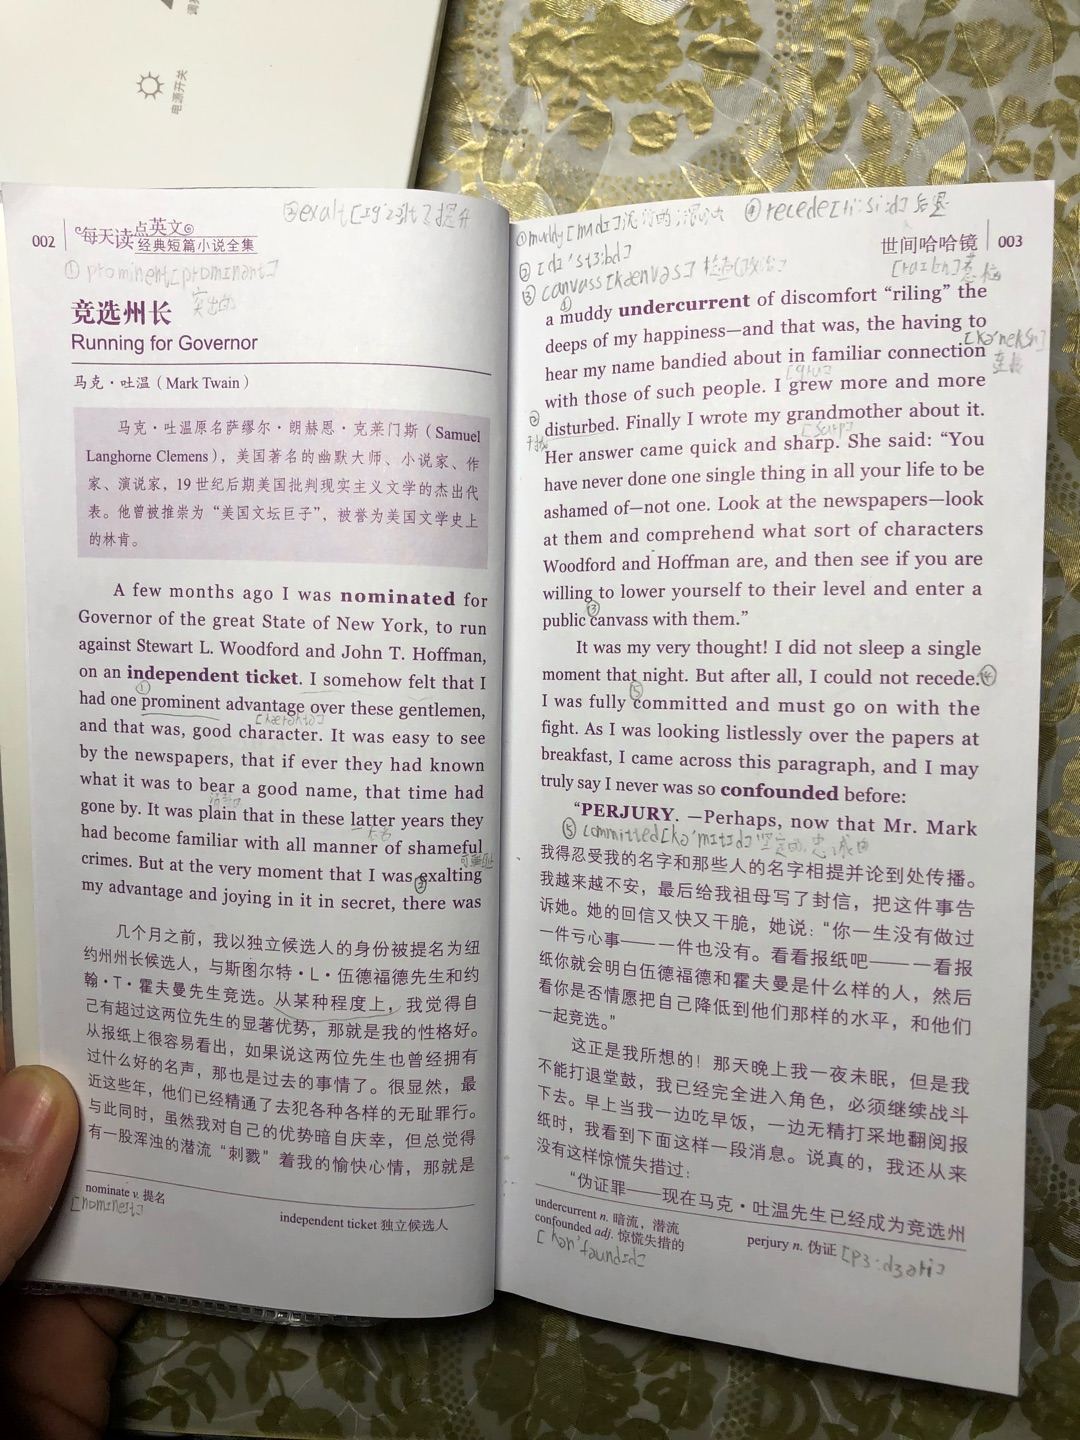 电源开关
③exalt
提升
002
每天读点英文
经典短篇小说全集
①prominent[prɒmɪnənt]
突出的
竞选州长
Running for Governor
马克·吐温（Mark Twain）
马克·吐温原名萨缪尔·朗赫恩·克莱门斯（Samuel
Langhorne Clemens），美国著名的幽默大师、小说家、作
家、演说家，19世纪后期美国批判现实主义文学的杰出代
表。他曾被推崇为“美国文坛巨子”，被誉为美国文学史上
的林肯。
A few months ago I was nominated for
Governor of the great State of New York, to run
against Stewart L. Woodford and John T. Hoffman,
on an independent ticket. I somehow felt that I
①
had one prominent advantage over these gentlemen,
and that was, good character. It was easy to see
by the newspapers, that if ever they had known
what it was to bear a good name, that time had
gone by. It was plain that in these latter years they
had become familiar with all manner of shameful
crimes. But at the very moment that I was exalting
my advantage and joying in it in secret, there was
几个月之前，我以独立候选人的身份被提名为纽
约州州长候选人，与斯图尔特·L·伍德福德先生和约
翰·T·霍夫曼先生竞选。从某种程度上，我觉得自
己有超过这两位先生的显著优势，那就是我的性格好。
从报纸上很容易看出，如果说这两位先生也曾经拥有
过什么好的名声，那也是过去的事情了。很显然，最
近这些年，他们已经精通了去犯各种各样的无耻罪行。
与此同时，虽然我对自己的优势暗自庆幸，但总觉得
有一股浑浊的潜流“刺戮”着我的愉快心情，那就是
nominate v. 提名
independent ticket 独立候选人
①muddy
④recede[ri'si:d]后退
②[dɪ'stɜ:bd]
③canvass[kænvəs]检查(政治)
世间哈哈镜
003
①
a muddy undercurrent of discomfort “riling” the
deeps of my happiness—and that was, the having to
hear my name bandied about in familiar connection
连接
with those of such people. I grew more and more
②
disturbed. Finally I wrote my grandmother about it.
Her answer came quick and sharp. She said: “You
have never done one single thing in all your life to be
ashamed of—not one. Look at the newspapers—look
at them and comprehend what sort of characters
Woodford and Hoffman are, and then see if you are
willing to lower yourself to their level and enter a
③
public canvass with them.”
It was my very thought! I did not sleep a single
moment that night. But after all, I could not recede.④
⑤
I was fully committed and must go on with the
fight. As I was looking listlessly over the papers at
breakfast, I came across this paragraph, and I may
truly say I never was so confounded before:
“PERJURY. —Perhaps, now that Mr. Mark
⑤committed[kə'mɪtɪd]坚定的,忠诚的
我得忍受我的名字和那些人的名字相提并论到处传播。
我越来越不安，最后给我祖母写了封信，把这件事告
诉她。她的回信又快又干脆，她说：“你一生没有做过
一件亏心事——一件也没有。看看报纸吧——一看报
纸你就会明白伍德福德和霍夫曼是什么样的人，然后
看你是否情愿把自己降低到他们那样的水平，和他们
一起竞选。”
这正是我所想的！那天晚上我一夜未眠，但是我
不能打退堂鼓，我已经完全进入角色，必须继续战斗
下去。早上当我一边吃早饭，一边无精打采地翻阅报
纸时，我看到下面这样一段消息。说真的，我还从来
没有这样惊慌失措过：
“伪证罪——现在马克·吐温先生已经成为竞选州
undercurrent n. 暗流，潜流
confounded adj. 惊慌失措的
[kən'faundɪd]
perjury n. 伪证[pɜ:dʒəri]